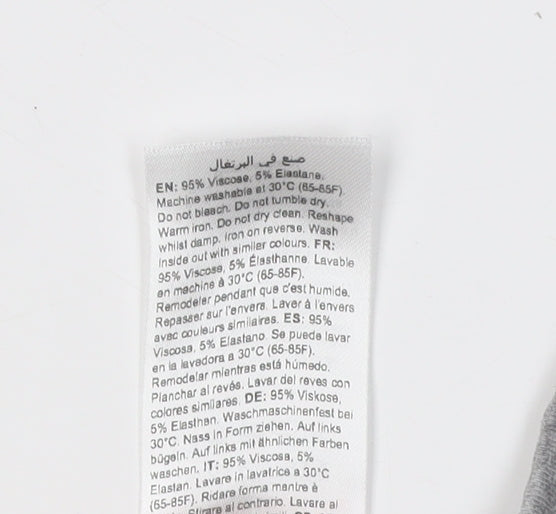 صنع في البرتغال
EN: 95% Viscose, 5% Elastane.
Machine washable at 30°C (65-85F).
Do not bleach. Do not tumble dry.
Warm iron. Do not dry clean. Reshape
whilst damp. Iron on reverse. Wash
inside out with similar colours. FR:
95% Viscose, 5% Élasthanne. Lavable
en machine à 30°C (65-85F).
Remodeler pendant que c'est humide.
Repasser sur l'envers. Laver à l'envers
avec couleurs similaires. ES: 95%
Viscosa, 5% Elastano. Se puede lavar
en la lavadora a 30°C (65-85F).
Remodelar mientras está húmedo.
Planchar al revés. Lavar del reves con
colores similares. DE: 95% Viskose,
5% Elasthan. Waschmaschinenfest bei
30°C. Nass in Form ziehen. Auf links
bügeln. Auf links mit ähnlichen Farben
waschen. IT: 95% Viscosa, 5%
Elastan. Lavare in lavatrice a 30°C
(65-85F). Ridare forma mentre è
Stirare al contrario. Lavare al